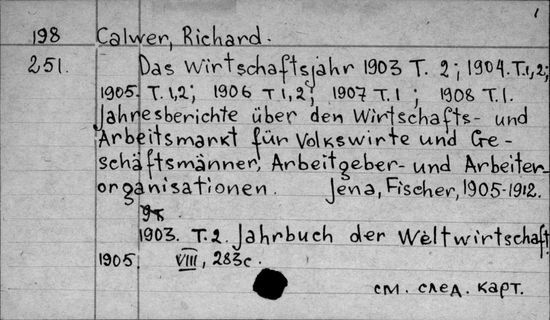 1
198 Calwer, Richard.
251. Das Wirtschaftsjahr 1903 T. 2; 1904. T. 1, 2;
1905. T. 1,2; 1906 T 1,2; 1907 T. 1 ; 1908 T. 1.
Jahresberichte über den Wirtschafts- und
Arbeitsmarkt für Volkswirte und Ge-
schäftsmänner, Arbeitgeber- und Arbeiter-
organisationen. Jena, Fischer, 1905-1912.
1903. T. 2. Jahrbuch der Weltwirtschaft
1905. VIII, 283 с.
см. след. карт.